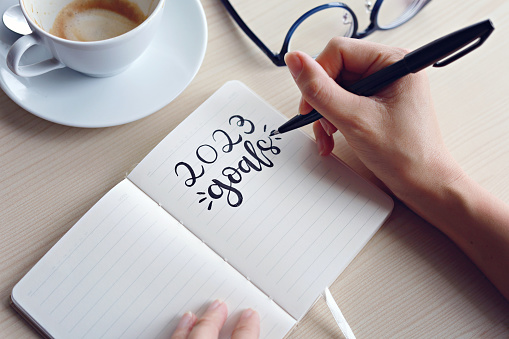 2023
goals